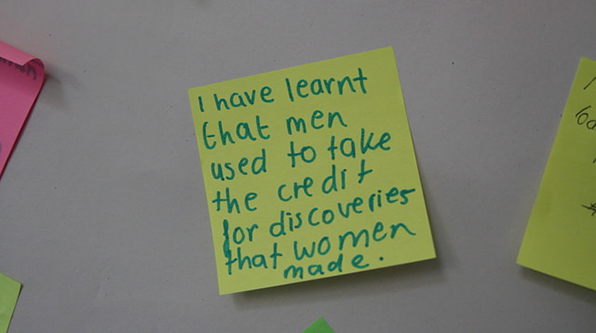 I have learnt
that men
used to take
the credit
for discoveries
that women
made.